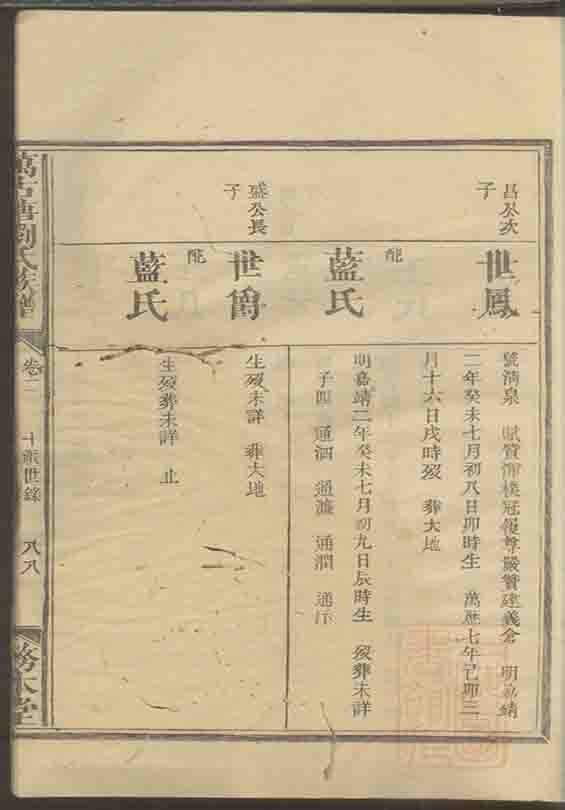 昌公次
子
世鳳
號滴泉 賦質渾樸冠履尊嚴贊建義倉 明嘉靖
二年癸未七月初八日卯時生 萬歷七年己卯三
月十六日戌時歿 葬大地
配
藍氏
明嘉靖二年癸未七月初九日辰時生 歿葬未詳
子四 通泗 通濂 通潤 通汴
盛公長
子
世爵
生歿未詳 葬大地
配
藍氏
生歿葬未詳 止
萬古塘劉氏族譜
卷二 十派世錄 八八
務本堂